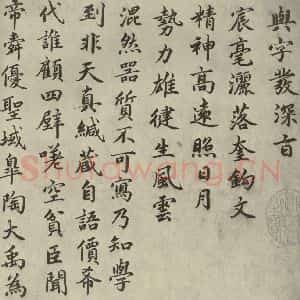 與字發深旨
宸毫灑落奎鈎文
精神高遠昭日月
勢力雄健生風雲
混然器質不可寫乃知學
到非天真緘藏自語價希
代誰顧四壁嗟空貧臣聞
帝舜優聖域皋陶大禹為
Shufawang.CN